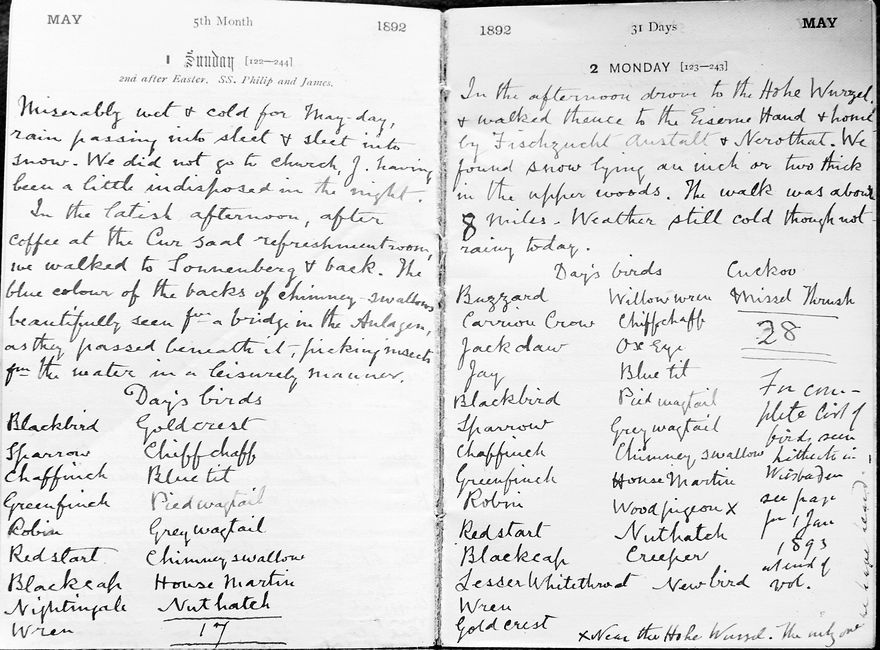 MAY 5th Month 1892
1 Sunday [122—244]
2nd after Easter. SS. Philip and James.
Miserably wet & cold for May-day,
rain passing into sleet & sleet into
snow. We did not go to church, J. having
been a little indisposed in the night.
In the latish afternoon, after
coffee at the Cur saal refreshment room,
we walked to Sonnenberg & back. The
blue colour of the backs of chimney-swallows
beautifully seen fm a bridge in the Anlagen,
as they passed beneath it, picking insects
fm the water in a leisurely manner.
Day's birds
Blackbird Goldcrest
Sparrow Chiffchaff
Chaffinch Blue tit
Greenfinch Pied wagtail
Robin Grey wagtail
Redstart Chimney swallow
Blackcap House Martin
Nightingale Nuthatch
Wren 17
1892 31 Days MAY
2 MONDAY [123—243]
In the afternoon drove to the Hohe Wurzel,
& walked thence to the Eiserne Hand & home
by Fischzucht Anstalt & Nerothal. We
found snow lying an inch or two thick
in the upper woods. The walk was about
8 miles. Weather still cold though not
rainy today.
Day's birds Cuckoo
Buzzard Willow wren Missel Thrush
Carrion Crow Chiffchaff 28
Jackdaw Ox Eye
Jay Blue tit
Blackbird Pied wagtail
Sparrow Grey wagtail
Chaffinch Chimney swallow
Greenfinch House Martin
Robin Woodpigeon x
Redstart Nuthatch
Blackcap Creeper
Lesser Whitethroat New bird
Wren
Goldcrest
For com-
plete list of
birds seen
hitherto in
Wiesbaden
see page
for 1 Jan
1893
at end of
vol.
x Near the Hohe Wurzel. The only one